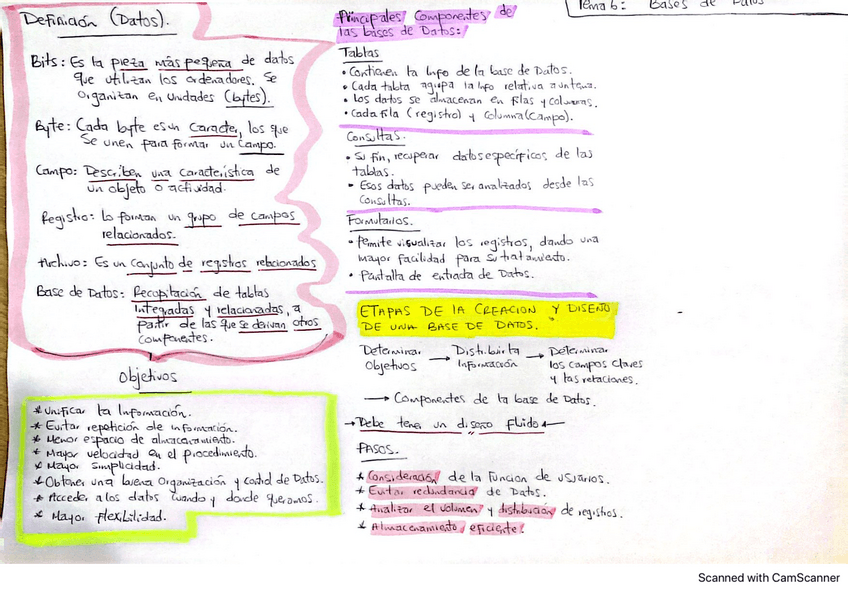 Definición (Datos).
Bits: Es la pieza más pequeña de datos
que utilizan los ordenadores. Se
Organizan en Unidades (bytes).
Byte: Cada byte es un Caracter, los que
Se unen para formar un Campo.
Campo: Describen una característica de
un objeto o actividad.
Registro: Lo forman un grupo de campos
relacionados.
Archivo: Es un Conjunto de registros relacionados
Base de Datos: Recopilación de tablas
Integradas y relacionadas, a
partir de las que se derivan otros
Componentes.
Objetivos
* Unificar la Información.
* Evitar repetición de información.
* Menor espacio de almacenamiento.
* Mayor velocidad en el procedimiento.
* Mayor simplicidad.
* Obtener una buena Organización y control de Datos.
* Acceder a los datos cuando y donde queramos.
* Mayor flexibilidad.
Tema 6: Bases de Datos
Principales Componentes de
las bases de Datos:
Tablas
• Contienen la Info de la base de Datos.
• Cada tabla agrupa la Info relativa a un tema.
• Los datos se almacenan en filas y columnas.
• Cada fila (registro) y Columna (Campo).
Consultas.
• Su fin, recuperar datos específicos de las
tablas.
• Esos datos pueden ser analizados desde las
Consultas.
Formularios.
• Permite visualizar los registros, dando una
mayor facilidad para su tratamiento.
• Pantalla de entrada de Datos.
ETAPAS DE LA CREACION Y DISEÑO
DE UNA BASE DE DATOS.
Determinar Objetivos → Distribuir la Información → Determinar
los campos claves
y las relaciones.
→ Componentes de la base de Datos.
→ Debe tener un diseño fluido ←
PASOS.
* Consideración de la función de usuarios.
* Evitar redundancia de Datos.
* Analizar el volumen y distribución de registros.
* Almacenamiento eficiente.
Scanned with CamScanner